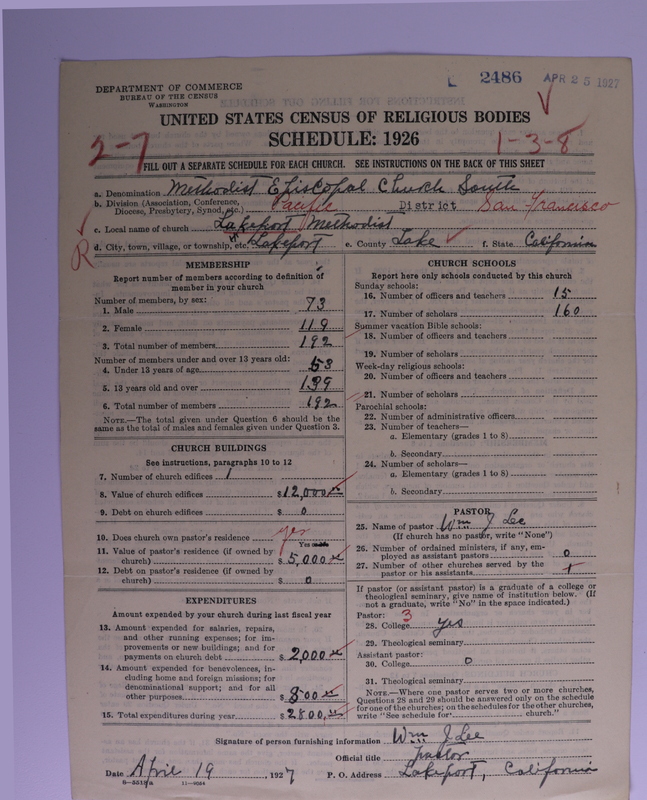 2486 APR 25 1927
DEPARTMENT OF COMMERCE
BUREAU OF THE CENSUS
WASHINGTON
UNITED STATES CENSUS OF RELIGIOUS BODIES
SCHEDULE: 1926
2-7
1-3-8
FILL OUT A SEPARATE SCHEDULE FOR EACH CHURCH. SEE INSTRUCTIONS ON THE BACK OF THIS SHEET
a. Denomination Methodist Episcopal Church South
b. Division (Association, Conference, Diocese, Presbytery, Synod, etc.) Pacific District San-Francisco
c. Local name of church Lakeport Methodist
R
d. City, town, village, or township, etc. Lakeport e. County Lake f. State California
MEMBERSHIP
Report number of members according to definition of
member in your church
Number of members, by sex:
1. Male 73
2. Female 119
3. Total number of members 192
Number of members under and over 13 years old:
4. Under 13 years of age 53
5. 13 years old and over 139
6. Total number of members 192
NOTE.—The total given under Question 6 should be the
same as the total of males and females given under Question 3.
CHURCH BUILDINGS
See instructions, paragraphs 10 to 12
7. Number of church edifices 1
8. Value of church edifices $12,000
9. Debt on church edifices $ 0
10. Does church own pastor's residence yes
Yes or no
11. Value of pastor's residence (if owned by
church) $ 5,000
12. Debt on pastor's residence (if owned by
church) $ 0
EXPENDITURES
Amount expended by your church during last fiscal year
13. Amount expended for salaries, repairs,
and other running expenses; for im-
provements or new buildings; and for
payments on church debt $ 2,000
14. Amount expended for benevolences, in-
cluding home and foreign missions; for
denominational support; and for all
other purposes $ 800
15. Total expenditures during year $2800
CHURCH SCHOOLS
Report here only schools conducted by this church
Sunday schools:
16. Number of officers and teachers 15
17. Number of scholars 160
Summer vacation Bible schools:
18. Number of officers and teachers
19. Number of scholars
Week-day religious schools:
20. Number of officers and teachers
21. Number of scholars
Parochial schools:
22. Number of administrative officers
23. Number of teachers—
a. Elementary (grades 1 to 8)
b. Secondary
24. Number of scholars—
a. Elementary (grades 1 to 8)
b. Secondary
PASTOR
25. Name of pastor Wm J Lee
(If church has no pastor, write "None")
26. Number of ordained ministers, if any, em-
ployed as assistant pastors 0
27. Number of other churches served by the
pastor or his assistants
If pastor (or assistant pastor) is a graduate of a college or
theological seminary, give name of institution below. (If
not a graduate, write "No" in the space indicated.)
Pastor: 3
28. College yes
29. Theological seminary
Assistant pastor:
30. College 0
31. Theological seminary
NOTE.—Where one pastor serves two or more churches,
Questions 28 and 29 should be answered only on the schedule
for one of the churches; on the schedules for the other churches,
write "See schedule for church."
Signature of person furnishing information Wm J Lee
Official title Pastor
Date April 19, 1927 P. O. Address Lakeport, California